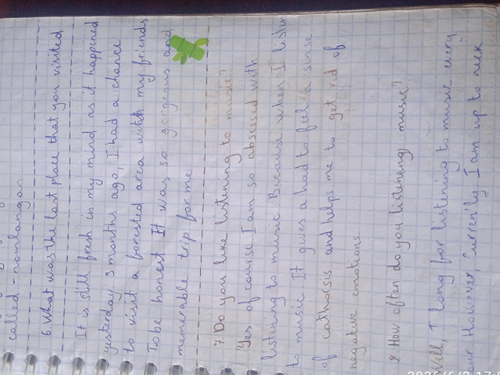 called - nonlangan
6. What was the last place that you visited
It is still fresh in my mind as it happened
yesterday 3 months ago, I had a chance
to visit a forested area with my friends
To be honest It was so gorgeous and
memerable trip for me
7. Do you like listening to music?
Yes of course I am so obsessed with
listening to music Because when I listen
to music It gives a had to feel a sense
of catharsis and helps me to get rid of
negative emotions
8. How often do you listening music?
Well, I long for listening to music every
However, Currently I am up to neck